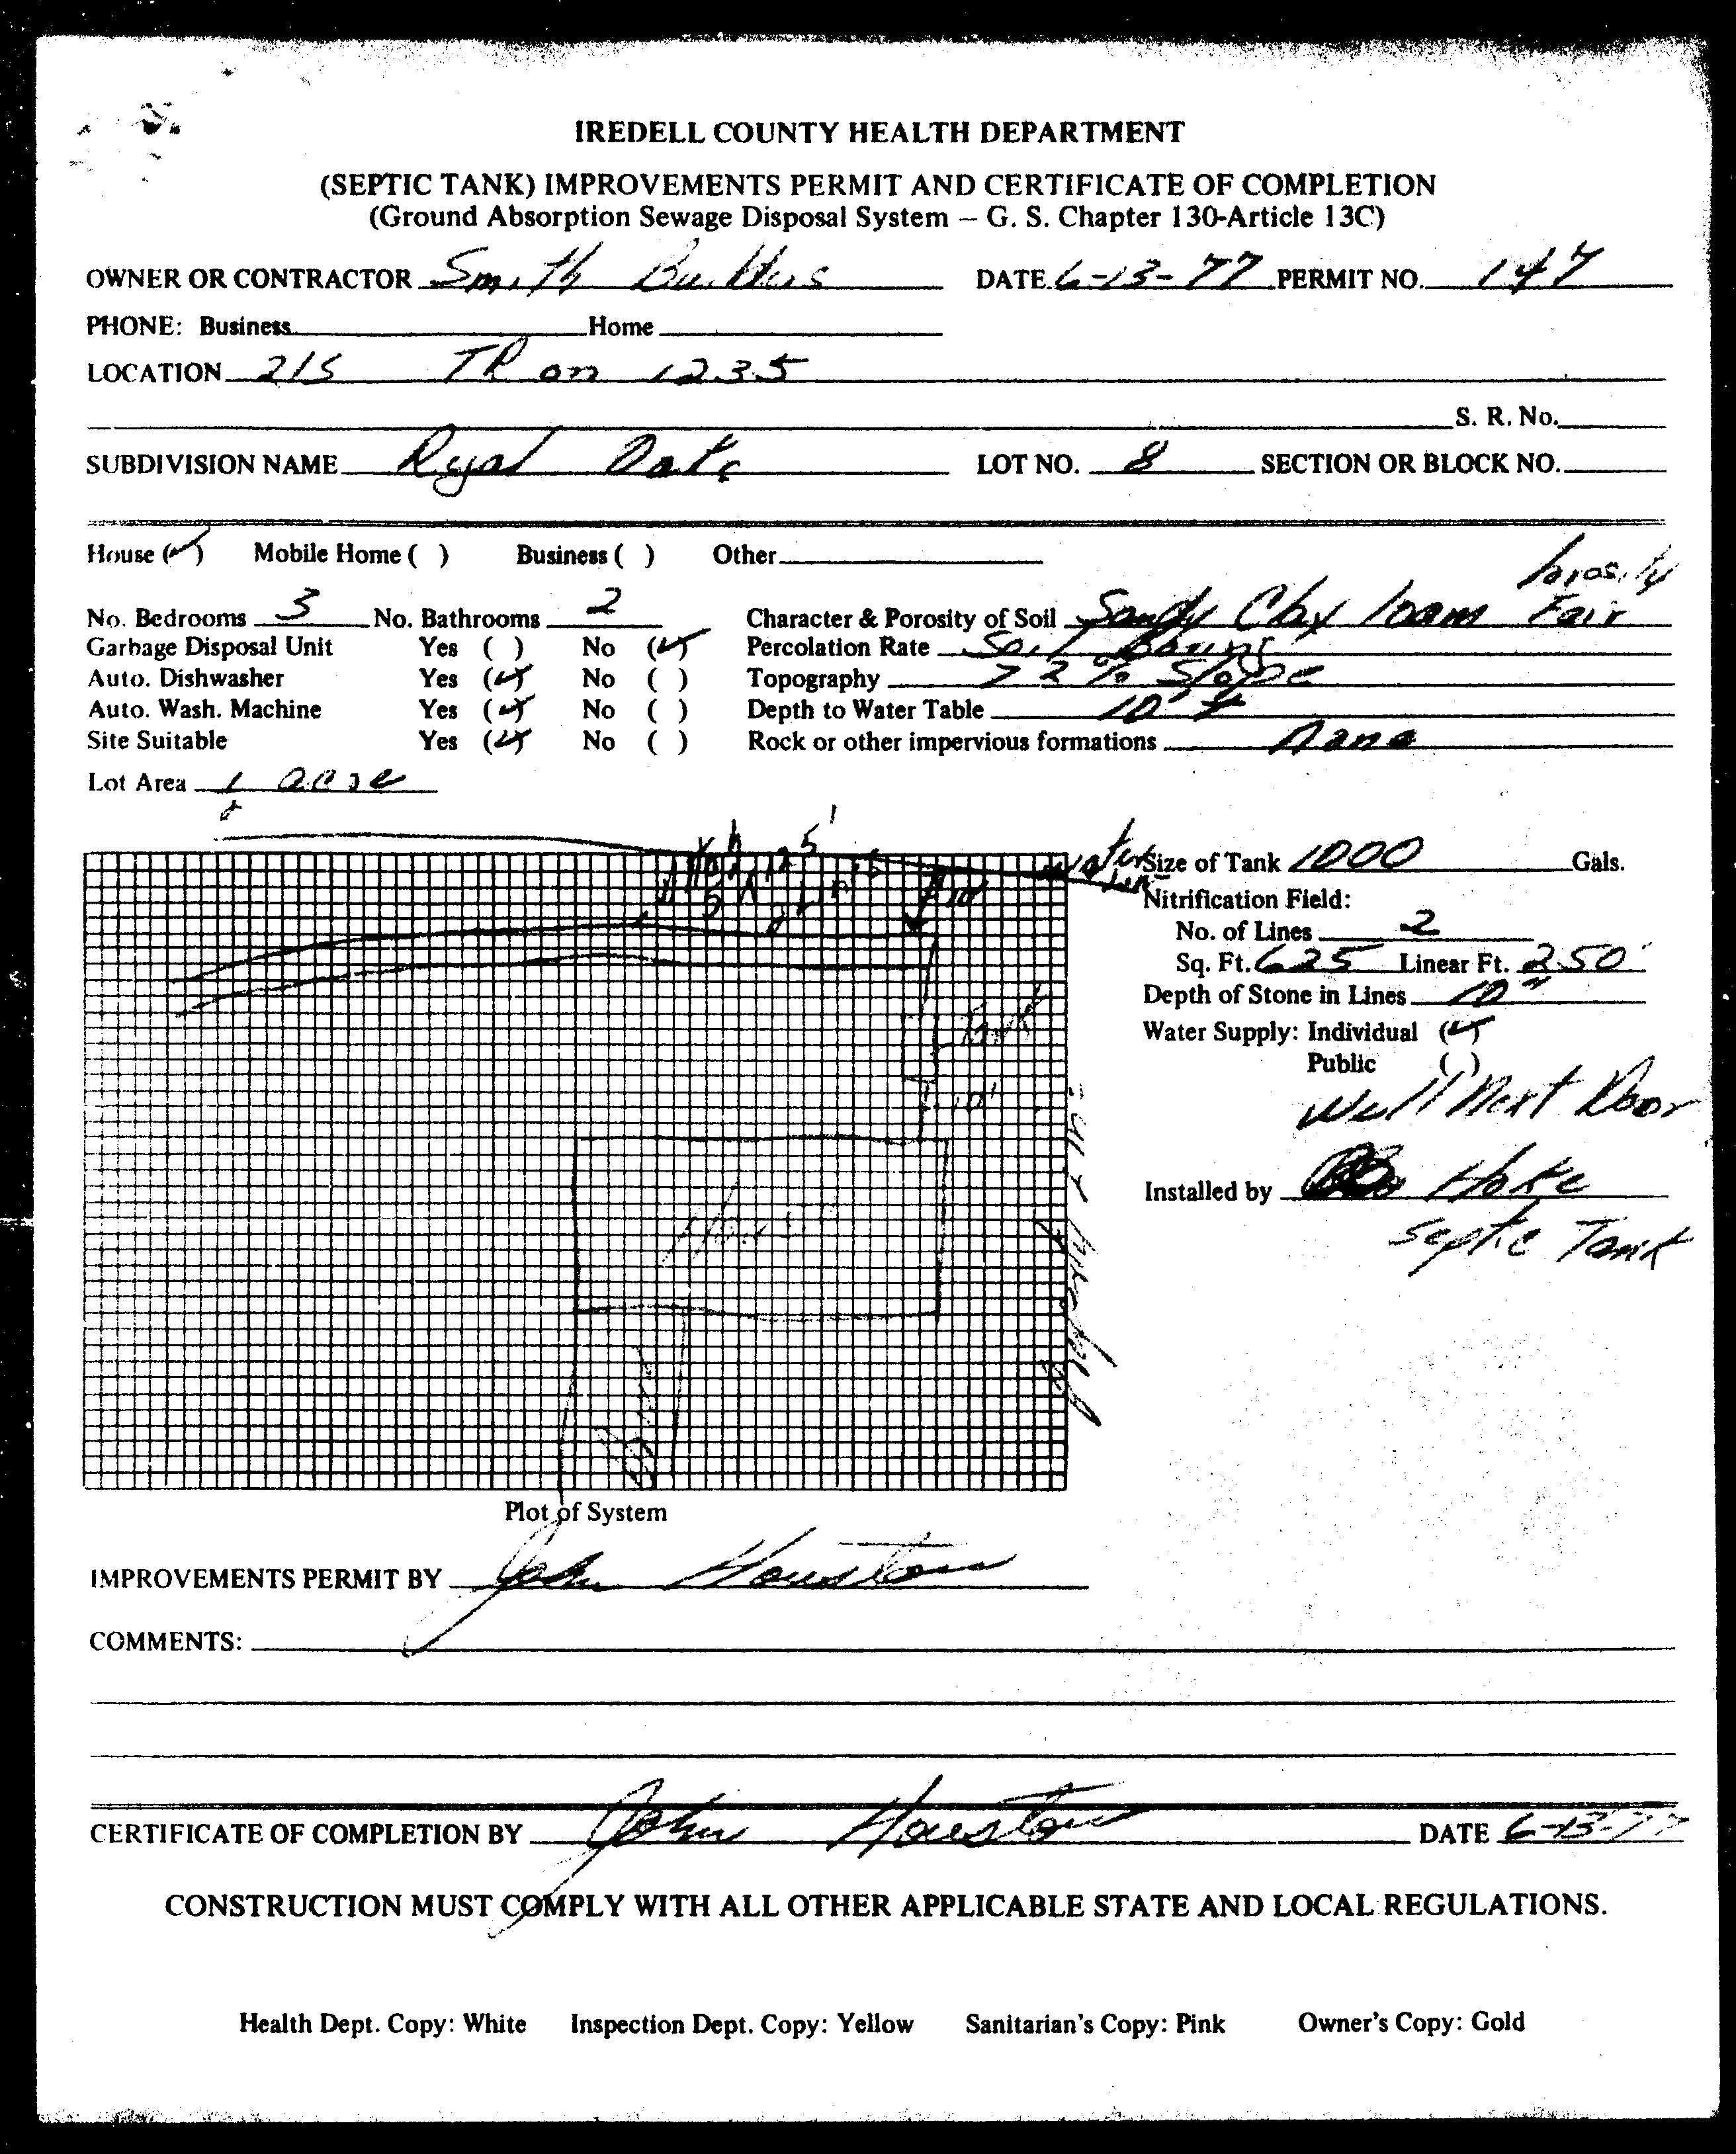 IREDELL COUNTY HEALTH DEPARTMENT
(SEPTIC TANK) IMPROVEMENTS PERMIT AND CERTIFICATE OF COMPLETION
(Ground Absorption Sewage Disposal System – G. S. Chapter 130-Article 13C)
OWNER OR CONTRACTOR Smith Builders DATE 6-13-77 PERMIT NO. 147
PHONE: Business Home
LOCATION 21S TR on 1235
S. R. No.
SUBDIVISION NAME Ryal Oaks LOT NO. 8 SECTION OR BLOCK NO.
House (✓) Mobile Home ( ) Business ( ) Other
porosity
No. Bedrooms 3 No. Bathrooms 2 Character & Porosity of Soil Sandy Clay loam Fair
Garbage Disposal Unit Yes ( ) No (✓) Percolation Rate Soil Boring
Auto. Dishwasher Yes (✓) No ( ) Topography > 2% Slope
Auto. Wash. Machine Yes (✓) No ( ) Depth to Water Table 10' +
Site Suitable Yes (✓) No ( ) Rock or other impervious formations None
Lot Area 1 acre
125'
2 Lines
10'
water Line
Size of Tank 1000 Gals.
Nitrification Field:
No. of Lines 2
Sq. Ft. 625 Linear Ft. 250'
Depth of Stone in Lines 10"
Water Supply: Individual (✓)
Public ( )
Well Next Door
Tank
10'
House
Installed by Hoke
Septic Tank
Plot of System
IMPROVEMENTS PERMIT BY John Houston
COMMENTS:
CERTIFICATE OF COMPLETION BY John Houston DATE 6-13-77
CONSTRUCTION MUST COMPLY WITH ALL OTHER APPLICABLE STATE AND LOCAL REGULATIONS.
Health Dept. Copy: White Inspection Dept. Copy: Yellow Sanitarian's Copy: Pink Owner's Copy: Gold